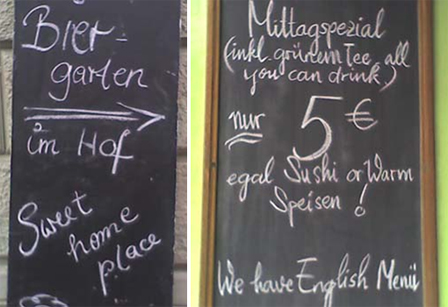 Bier-
garten
im Hof
Sweet
home
place
Mittagspezial
(inkl. grünem Tee all
you can drink)
nur 5 €
egal Sushi or Warm
Speisen!
We have English Menü